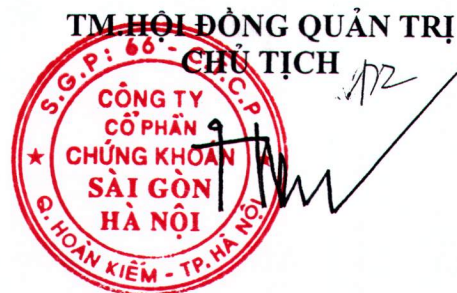 TM.HỘI ĐỒNG QUẢN TRỊ
CHỦ TỊCH
S.G.P: 66 - C.P
CÔNG TY
CỔ PHẦN
CHỨNG KHOÁN
SÀI GÒN
HÀ NỘI
Q. HOÀN KIẾM - TP. HÀ NỘI